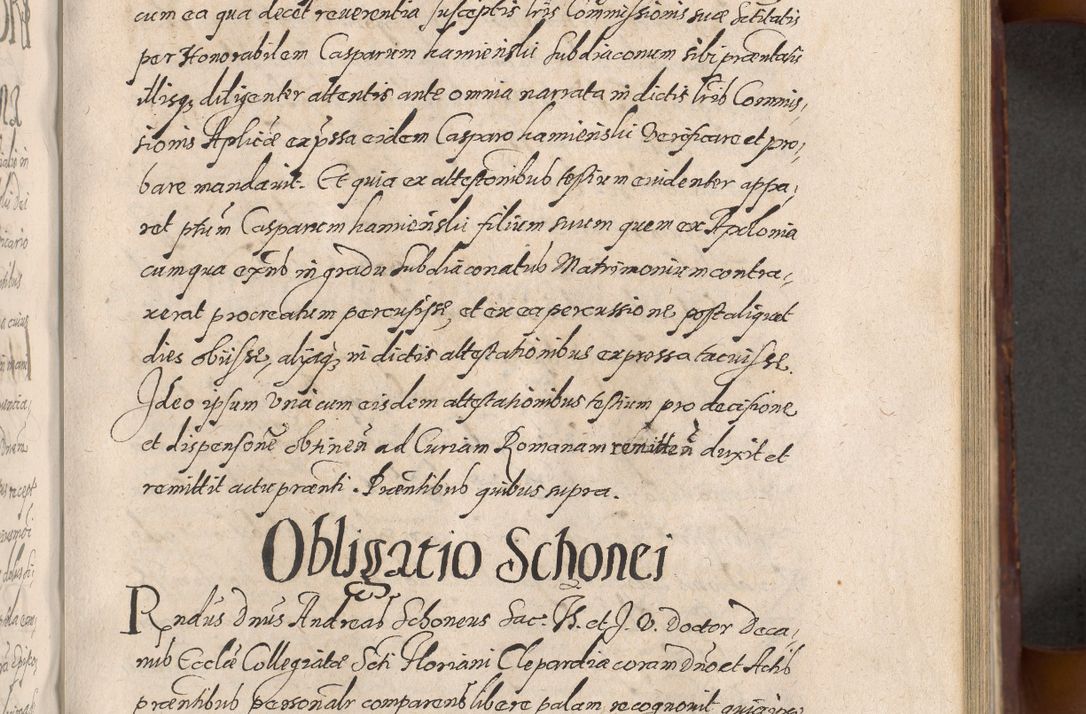 cum ea qua decet reverentia susceptis lris Commissionis suæ Sctitatis
per Honorabilem Casparum kamieński Subdiaconum sibi præntatis
illisq; diligenter attentis ante omnia narrata in dictis lrib Commis,
sionis Aplicæ expssa eidem Casparo kamieński Verificare et pro,
bare mandavit. Et quia ex attestonibub testium evidenter appa,
ret ptum Casparum kamieński filium suum quem ex Apolonia
cum qua exnb in gradu Subdiaconatub Matrimonium contra,
xerat procreatum percusisse, et ex ea percussione post aliquot
dies obiisse, aliaq; in dictis attestationibus expressa tacuisse.
Ideo ipsum Vna cum eisdem attestationibus testium pro decisione
et dispensone obtinen ad Curiam Romanam remitten duxit et
remittit actu prænti. Præntibub quibus supra.
Obligatio Schonei
Rndus Dnus Andreas Schoneus Sac: Th. et J. V. Doctor Deca,
nub Ecclæ Collegiatæ Scti Floriani Clepardiæ coram Dno et Actib
præntibub personalr comparens libere palam recognovit quia